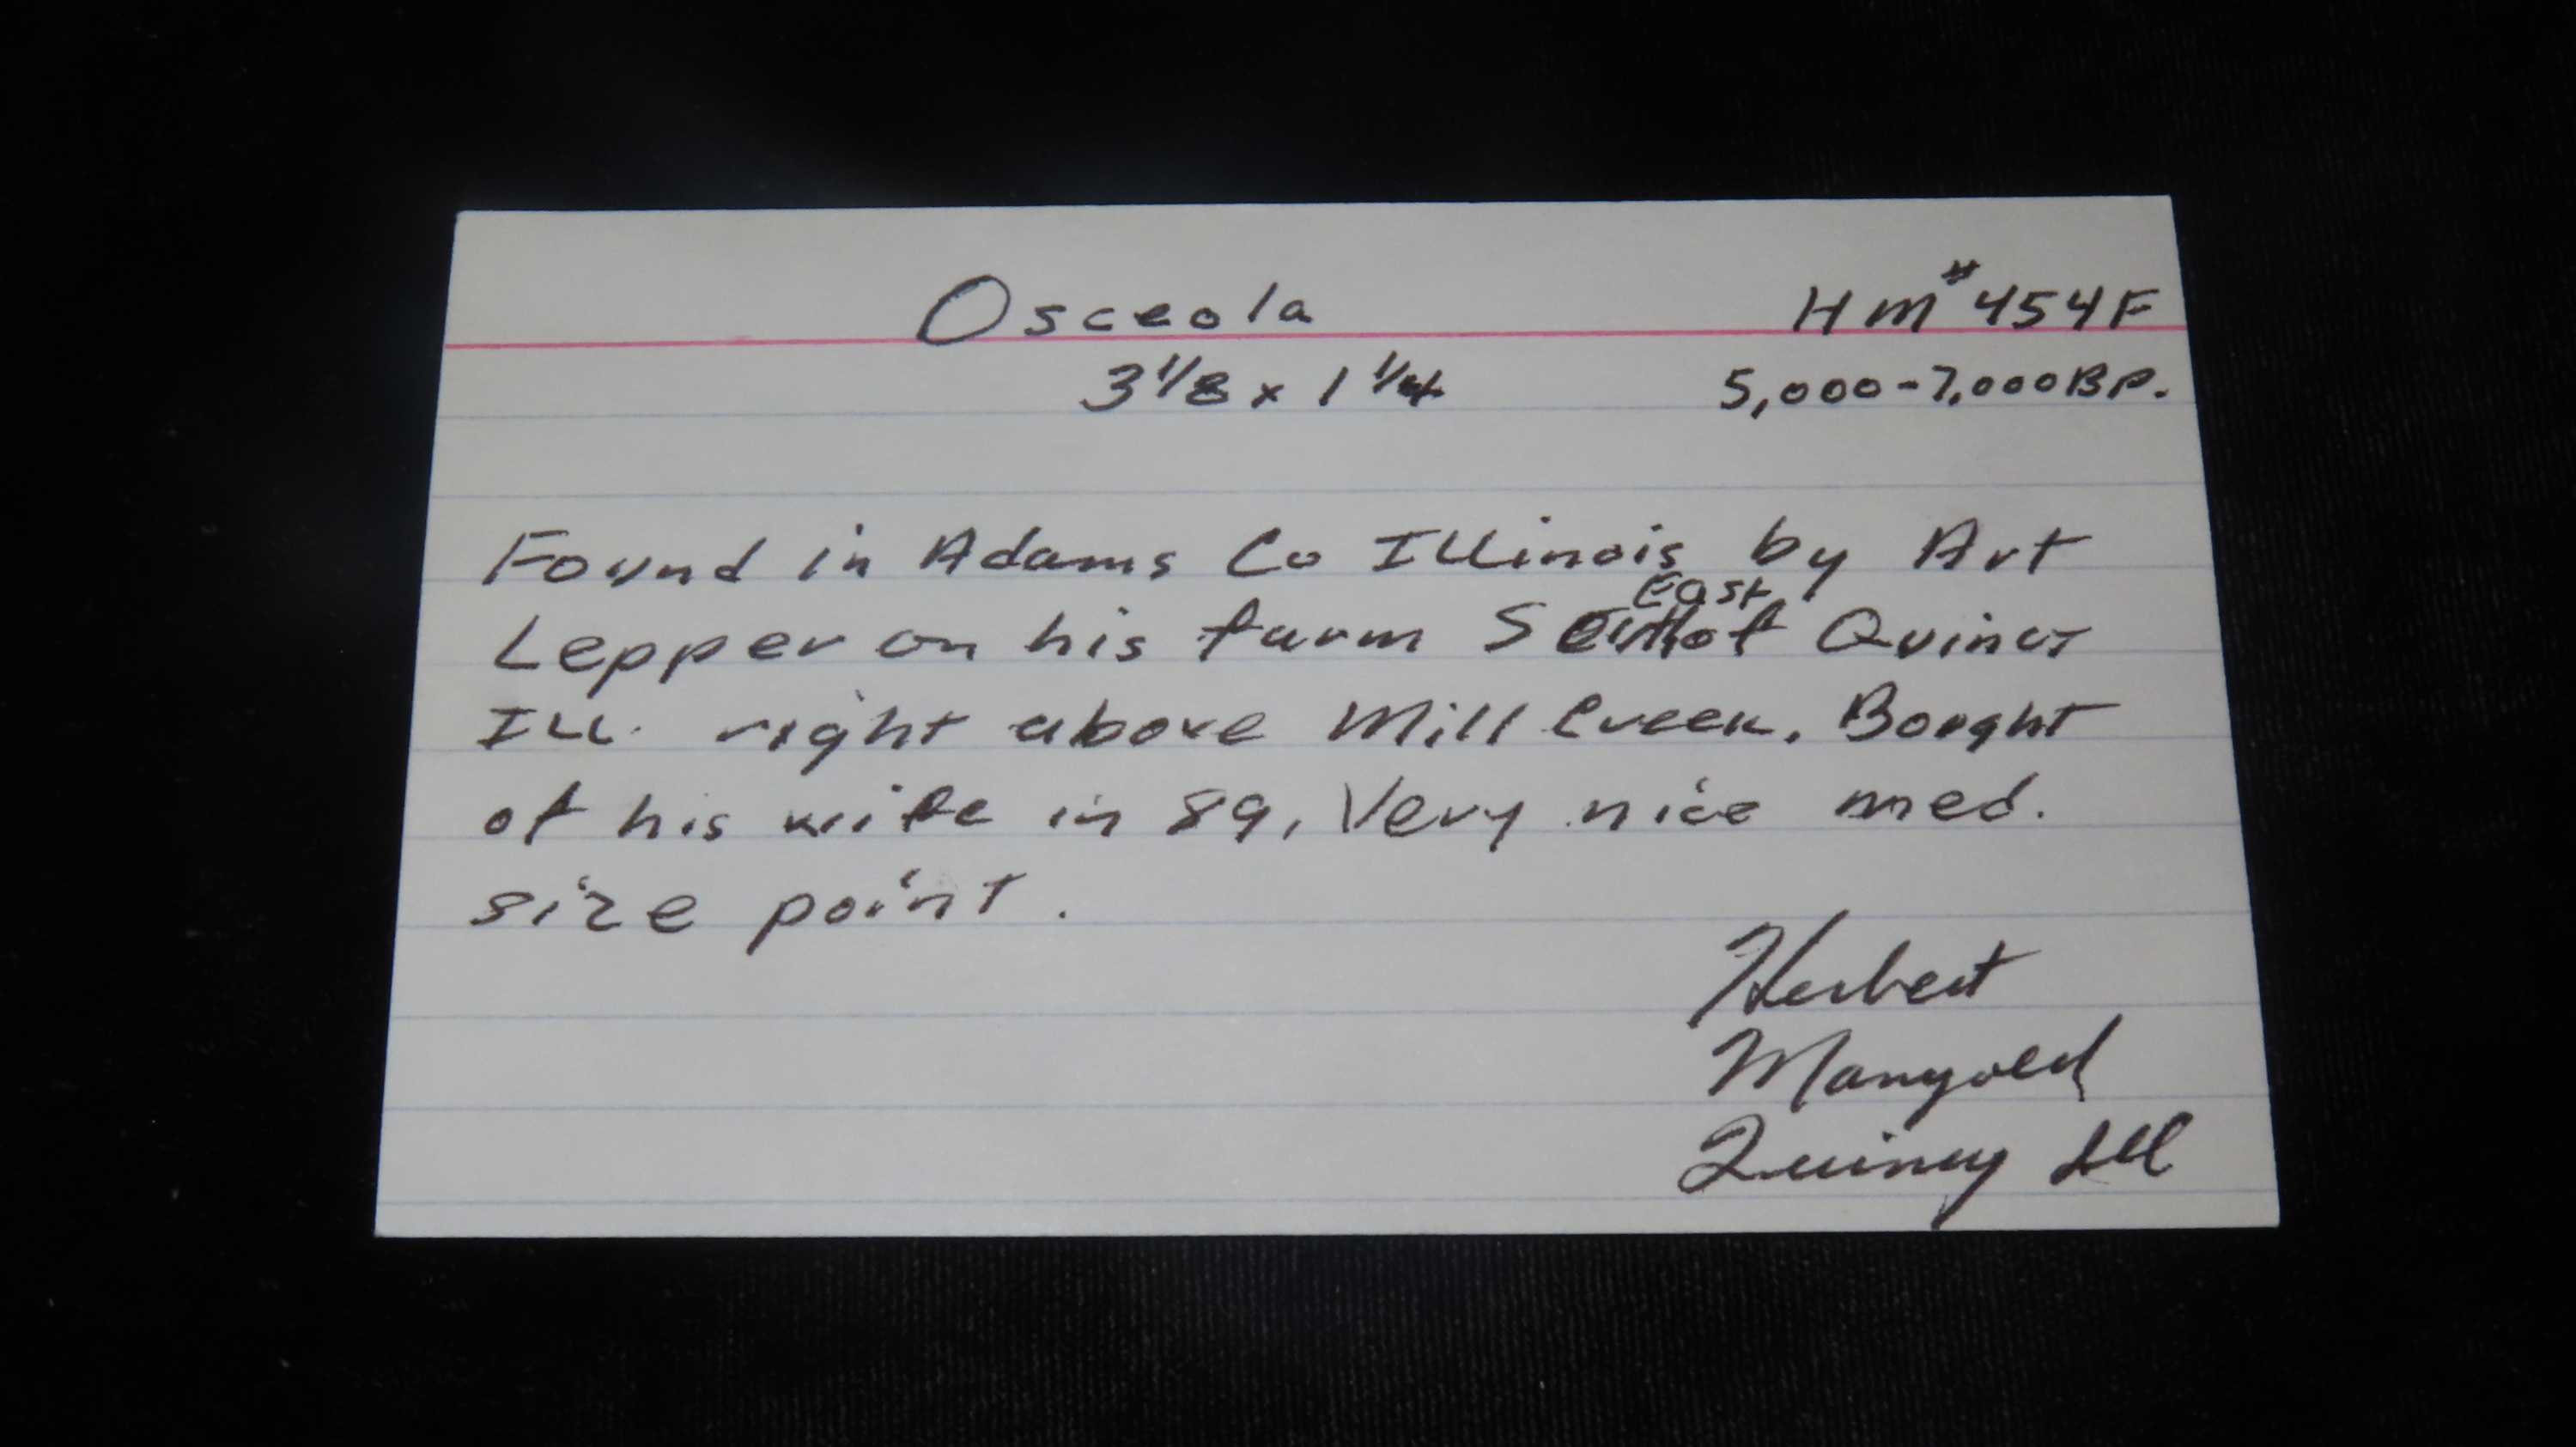 Osceola HM #454F
3 1/8 x 1 1/4 5,000-7,000 BP.
Found in Adams Co Illinois by Art
East
Lepper on his farm South of Quincy
Ill. right above Mill Creek. Bought
of his wife in 89, Very nice med.
size point.
Herbert
Mangold
Quincy Ill